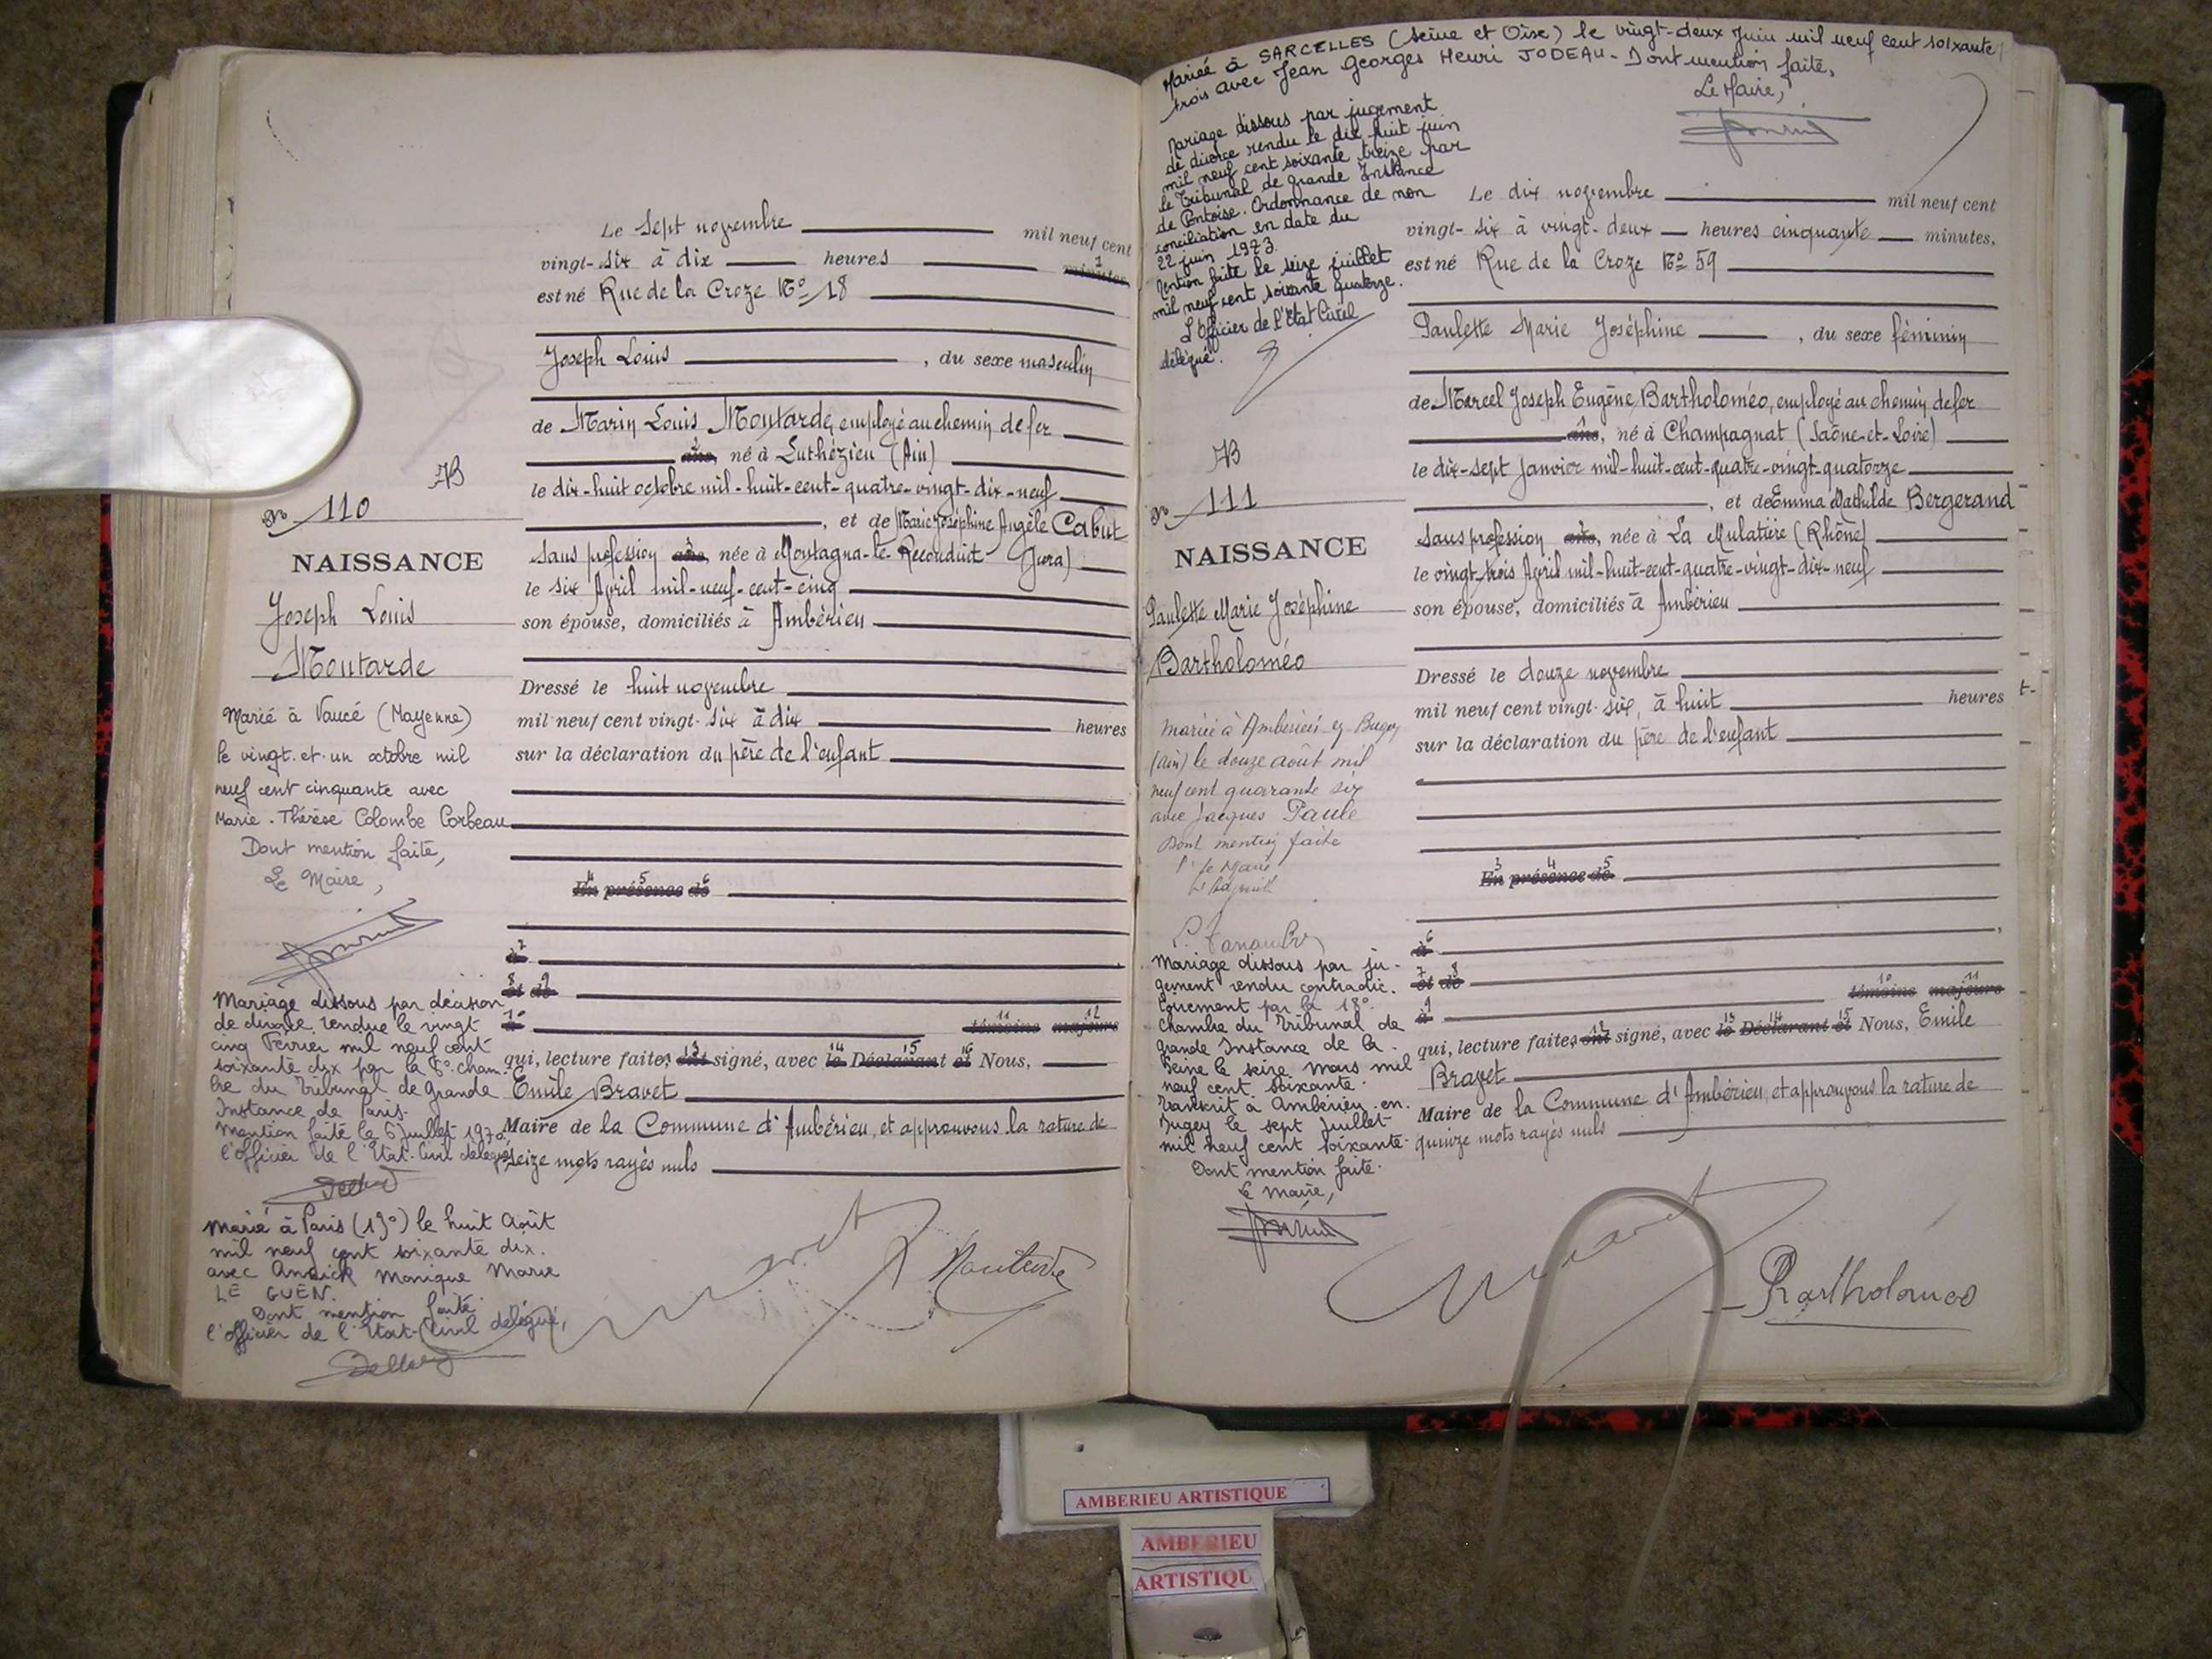 Le Sept novembre mil neuf cent
vingt-six à dix heures minutes
est né Rue de la Croze No 18
Joseph Louis , du sexe masculin
de Marin Louis Moutarde, employé au chemin de fer
ans, né à Luthézieu (Ain)
le dix-huit octobre mil-huit-cent-quatre-vingt-dix-neuf
, et de Marie Joséphine Angèle Cabut
Sans profession ans, née à Montagna-le-Reconduit (Jura)
le six Avril mil-neuf-cent-cinq
son épouse, domiciliés à Ambérieu
Dressé le huit novembre
mil neuf cent vingt-six à dix heures
sur la déclaration du père de l'enfant
En présence de
à
et de
à témoins majeurs
qui, lecture faite, ont signé, avec le Déclarant et Nous,
Emile Bravet
Maire de la Commune d'Ambérieu, et approuvons la rature de
seize mots rayés nuls
Moutarde
No 110
NAISSANCE
Joseph Louis
Moutarde
Marié à Vaucé (Mayenne)
le vingt-et-un octobre mil
neuf cent cinquante avec
Marie-Thérèse Colombe Corbeau
Dont mention faite,
Le Maire,
Mariage dissous par décision
de divorce rendue le vingt
cinq Février mil neuf cent
soixante dix par la cham-
bre du Tribunal de Grande
Instance de Paris.
Mention faite le 6 juillet 1970
l'officier de l'Etat-Civil délégué,
Marié à Paris (19°) le huit Août
mil neuf cent soixante dix.
avec Annick Monique Marie
LE GUEN.
Dont mention faite.
l'officier de l'Etat-Civil délégué,
Mariée à SARCELLES (Seine et Oise) le vingt-deux Juin mil neuf cent soixante
trois avec Jean Georges Henri JODEAU - Dont mention faite,
Le Maire,
Mariage dissous par jugement
de divorce rendu le dix huit juin
mil neuf cent soixante treize par
le Tribunal de Grande Instance
de Pontoise. Ordonnance de non
conciliation en date du
22 juin 1973.
Mention faite le seize juillet
mil neuf cent soixante quatorze.
L'Officier de l'Etat Civil
délégué.
Le dix novembre mil neuf cent
vingt-six à vingt-deux heures cinquante minutes.
est né Rue de la Croze No 59
Paulette Marie Joséphine , du sexe féminin
de Marcel Joseph Eugène Bartholoméo, employé au chemin de fer
ans, né à Champagnat (Saône-et-Loire)
le dix-sept Janvier mil-huit-cent-quatre-vingt-quatorze
, et de Emma Mathilde Bergerand
Sans profession ans, née à La Mulatière (Rhône)
le vingt-trois Avril mil-huit-cent-quatre-vingt-dix-neuf
son épouse, domiciliés à Ambérieu
Dressé le douze novembre
mil neuf cent vingt-six, à huit heures
sur la déclaration du père de l'enfant
En présence de
à
et de
à témoins majeurs
qui, lecture faite, ont signé, avec le Déclarant et Nous, Emile
Bravet
Maire de la Commune d'Ambérieu, et approuvons la rature de
quinze mots rayés nuls
Bartholoméo
No 111
NAISSANCE
Paulette Marie Joséphine
Bartholoméo
mariée à Ambérieu-en-Bugey
(Ain) le douze août mil
neuf cent quarante six
avec Jacques Paule
Dont mention faite
Mariage dissous par ju-
gement rendu contradic.
toirement par la 18°
Chambre du Tribunal de
Grande Instance de la
Seine le seize mars mil
neuf cent soixante.
Transcrit à Ambérieu-en-
Bugey le sept juillet
mil neuf cent soixante.
Dont mention faite.
Le Maire,
AMBERIEU ARTISTIQUE
AMBERIEU
ARTISTIQU